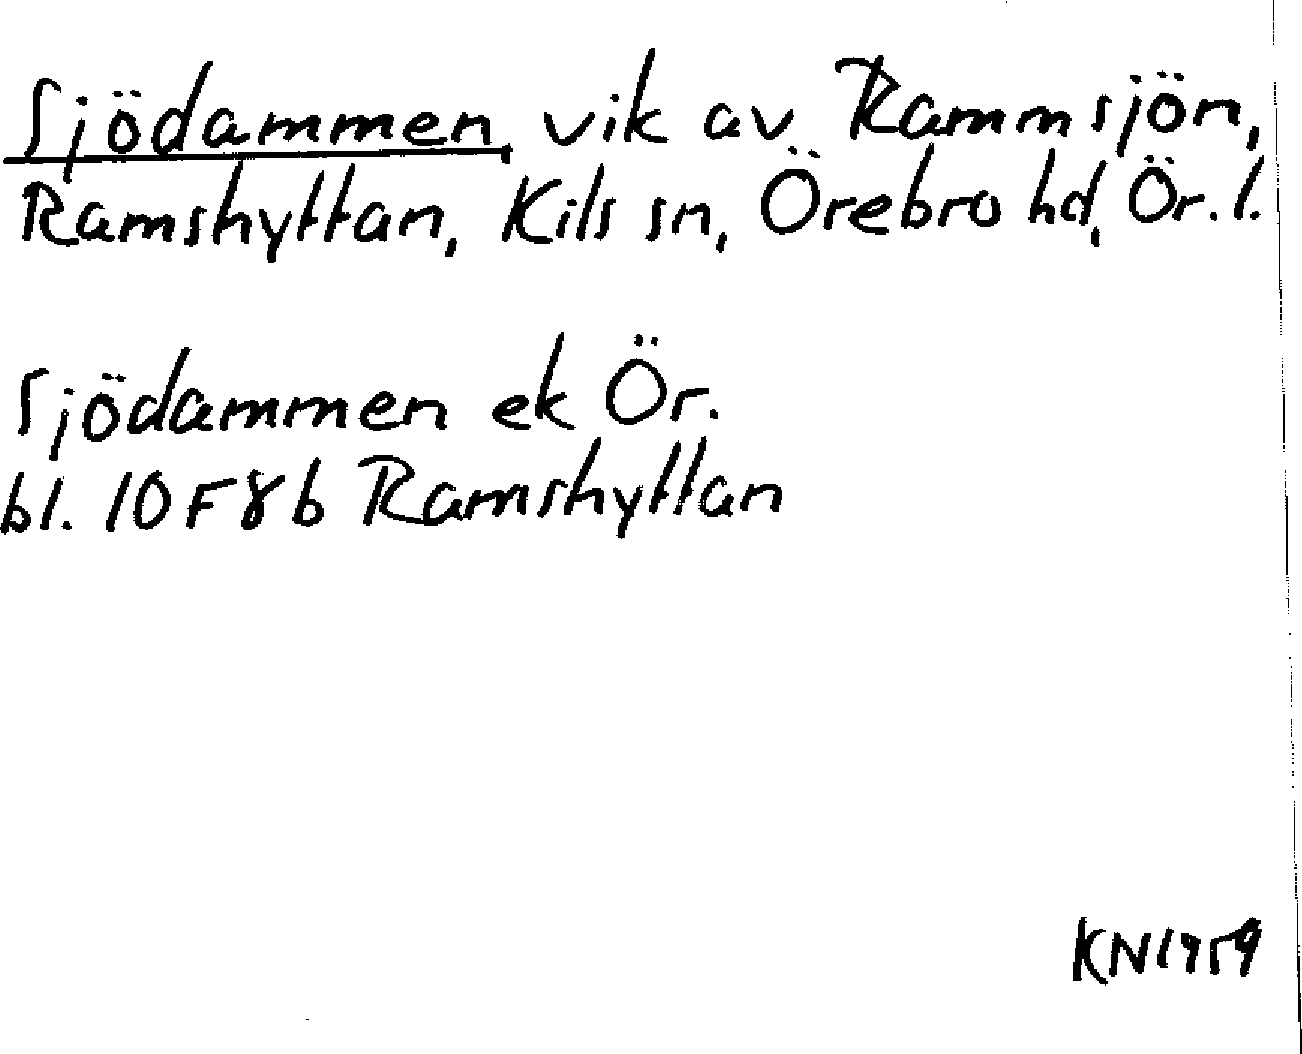 Sjödammen, vik av Rammsjön,
Ramshyttan, Kils sn, Örebro hd, Ör. l.
Sjödammen ek Ör.
bl. 10F8b Ramshyttan
KN1959